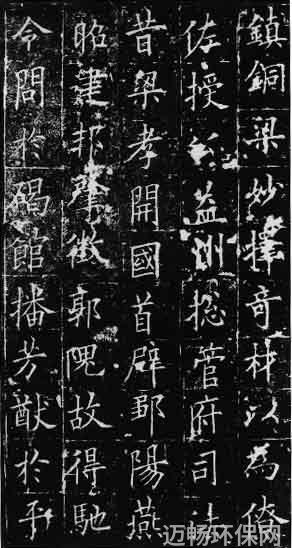 鎮銅梁妙擇奇材以為僚
佐授公益州揔管府司法
昔梁孝開國首辟鄒陽燕
昭建邦肇徵郭隗故得馳
令問於碣館播芳猷於平
迈畅环保网